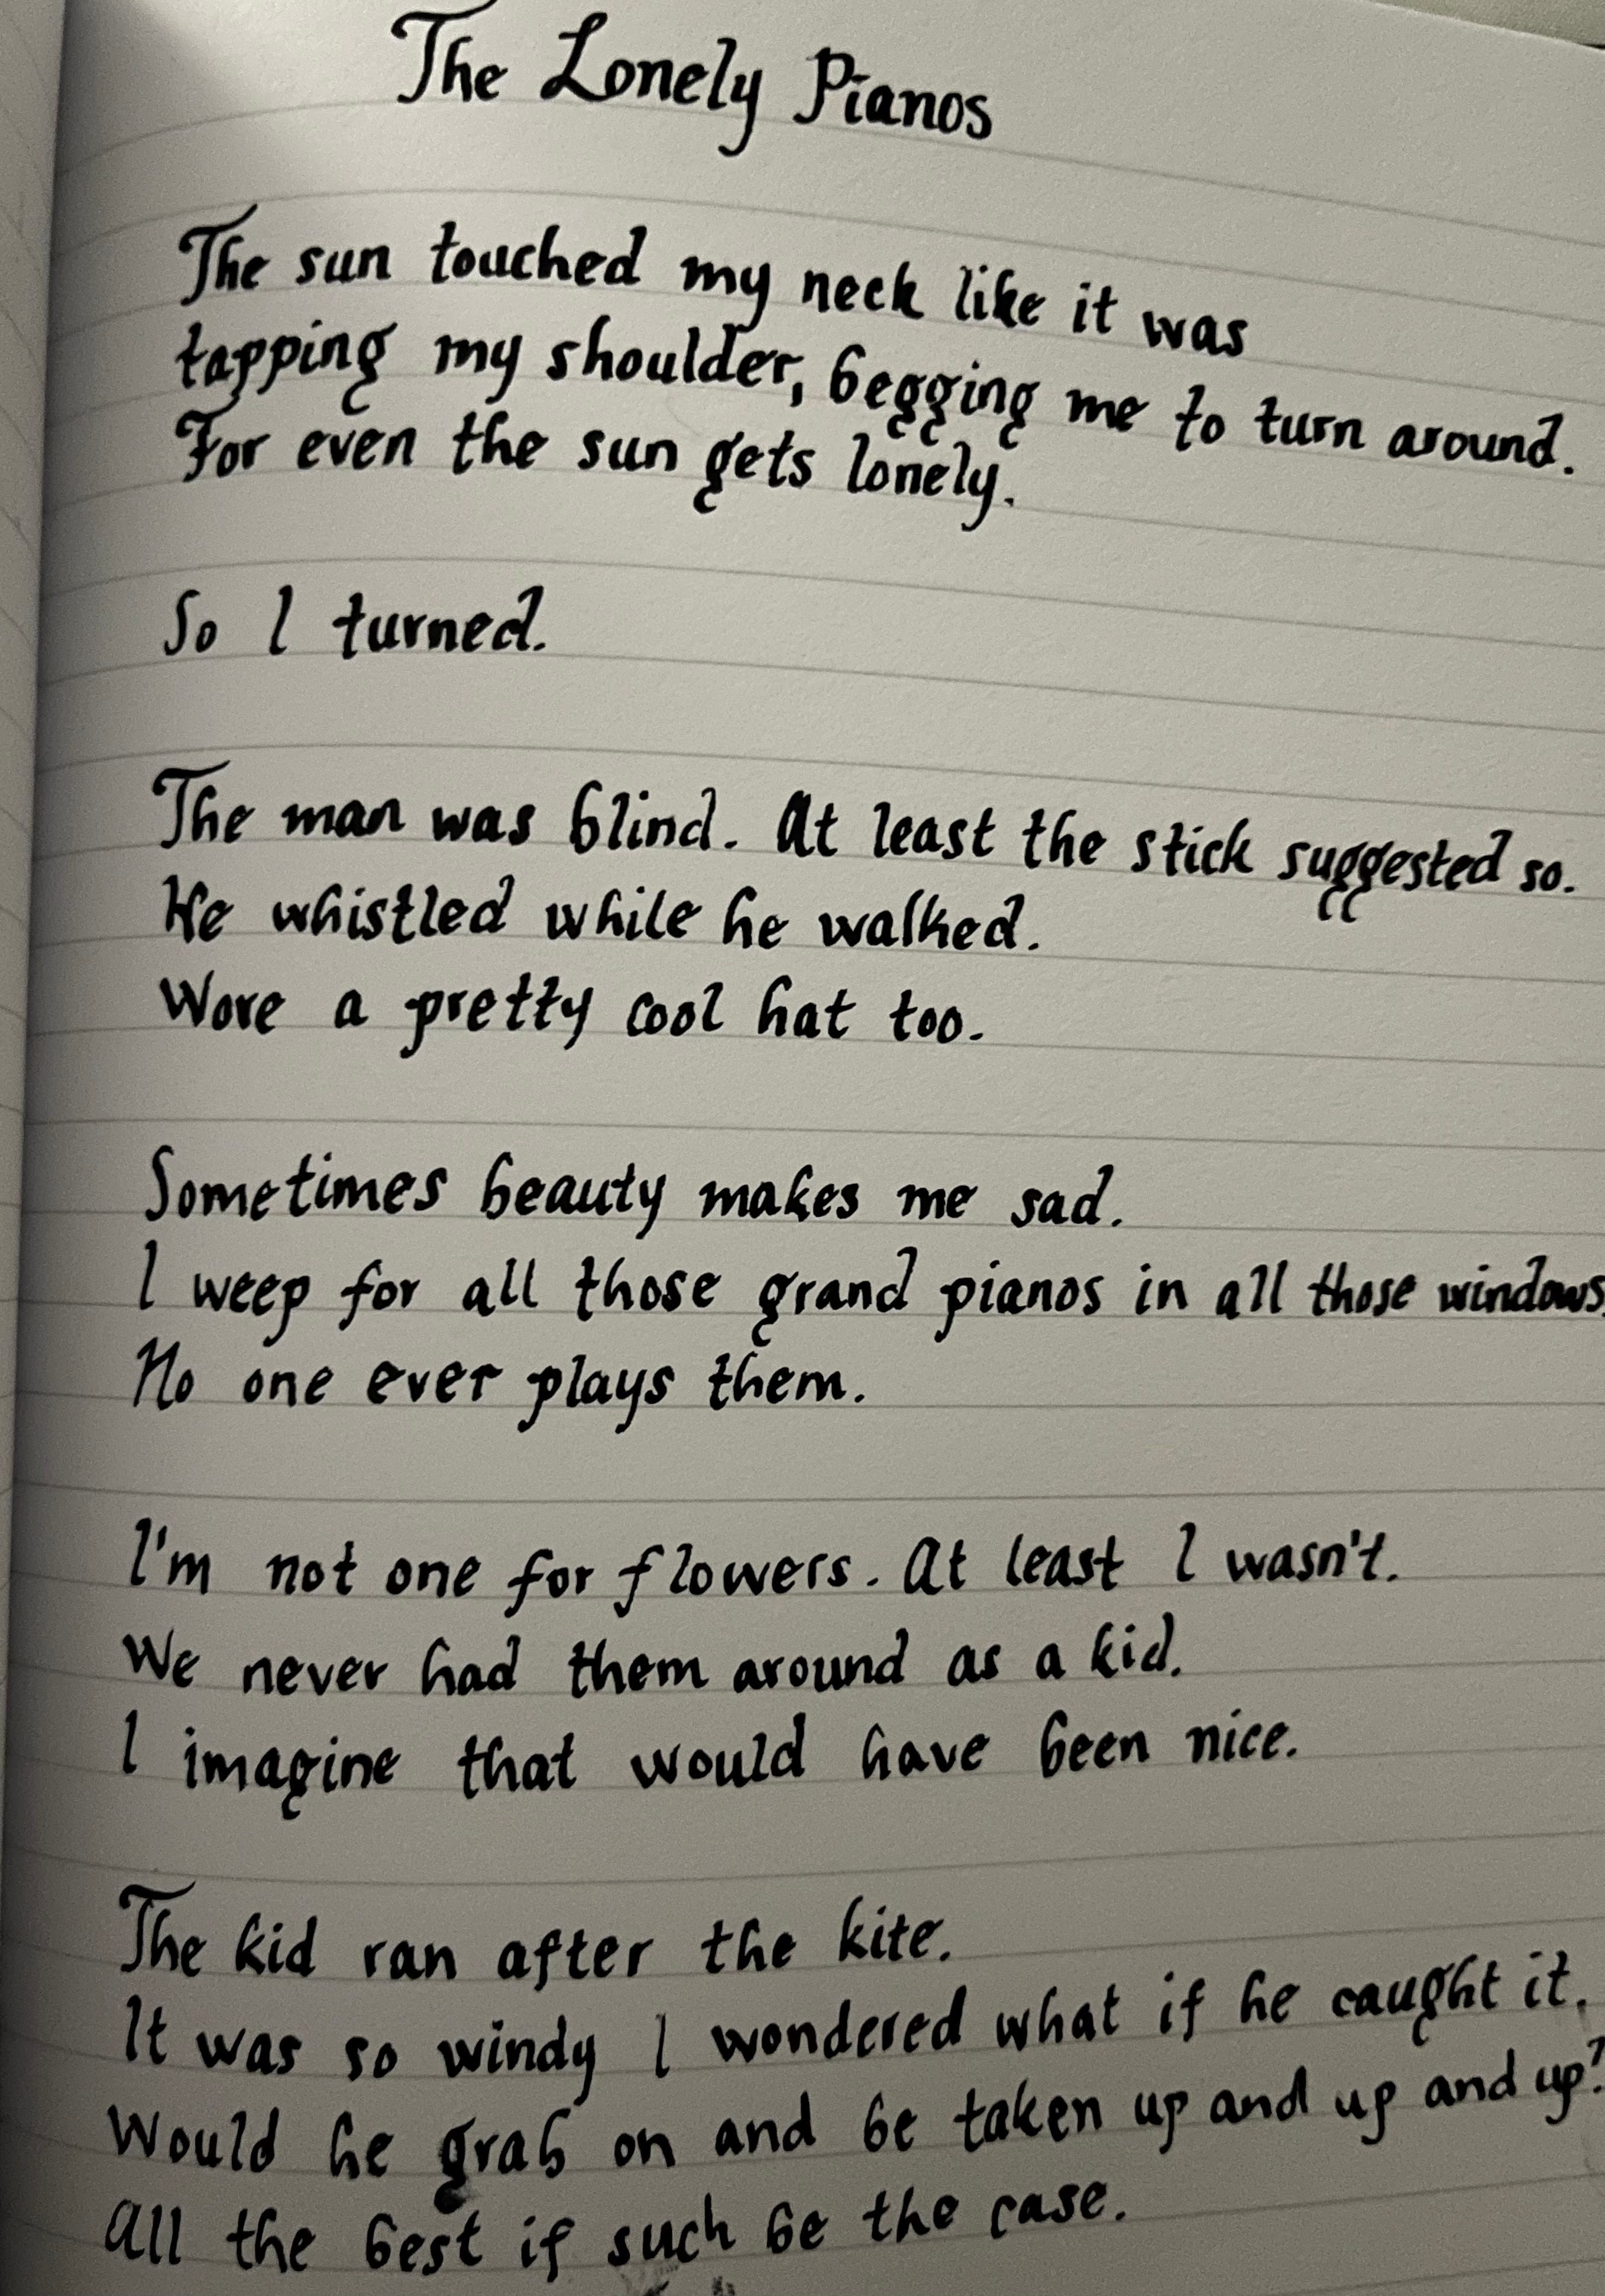 The Lonely Pianos
The sun touched my neck like it was
tapping my shoulder, begging me to turn around.
For even the sun gets lonely.
So I turned.
The man was blind. At least the stick suggested so.
He whistled while he walked.
Wore a pretty cool hat too.
Sometimes beauty makes me sad.
I weep for all those grand pianos in all those windows.
No one ever plays them.
I'm not one for flowers. At least I wasn't.
We never had them around as a kid.
I imagine that would have been nice.
The kid ran after the kite.
It was so windy I wondered what if he caught it.
Would he grab on and be taken up and up and up?
All the best if such be the case.